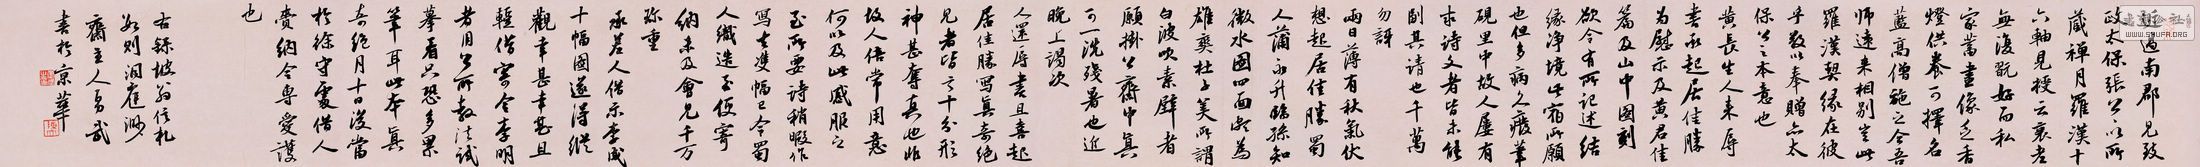 過南郡見致
政太保張公以所
藏禪月羅漢十
六軸見授云衰老
無復玩好而私
家蓄畫像乏香
燈供養可擇名
藍高僧施之今吾
師遠來相別豈此
羅漢契緣在彼
乎敬以奉贈亦太
保公之本意也
黃長生人來辱
書承起居佳勝
為慰示及黃君佳
篇及山中圖刻
欲令有所記述結
緣淨境此宿所願
也但多病久廢筆
硯里中故人屢有
求詩文者皆未能
副其請也千萬
勿訝
兩日薄有秋氣伏
想起居佳勝蜀
人蒲永升臨孫知
微水圖四面頗為
雄爽杜子美所謂
白波吹素壁者
願掛公齋中真
可一洗殘暑也近
晚上謁次
人還辱書且喜起
居佳勝寫真奇絕
見者皆言十分形
神甚奪真也非
故人倍常用意
何以及此感服之
至所要詩稍暇作
寫去雙幅已令蜀
人織造至便寄
納未及會見千万
珍重
承差人借示李成
十幅圖遂得縱
觀幸甚幸甚且
輕借寄令李明
者用公所教法試
摹看只恐多累
筆耳此本真
奇絕月十日後當
於徐守處借人
賚納令專愛護
也
右錄坡翁信札
數則洞庭渺
齋主人易武
書於京華